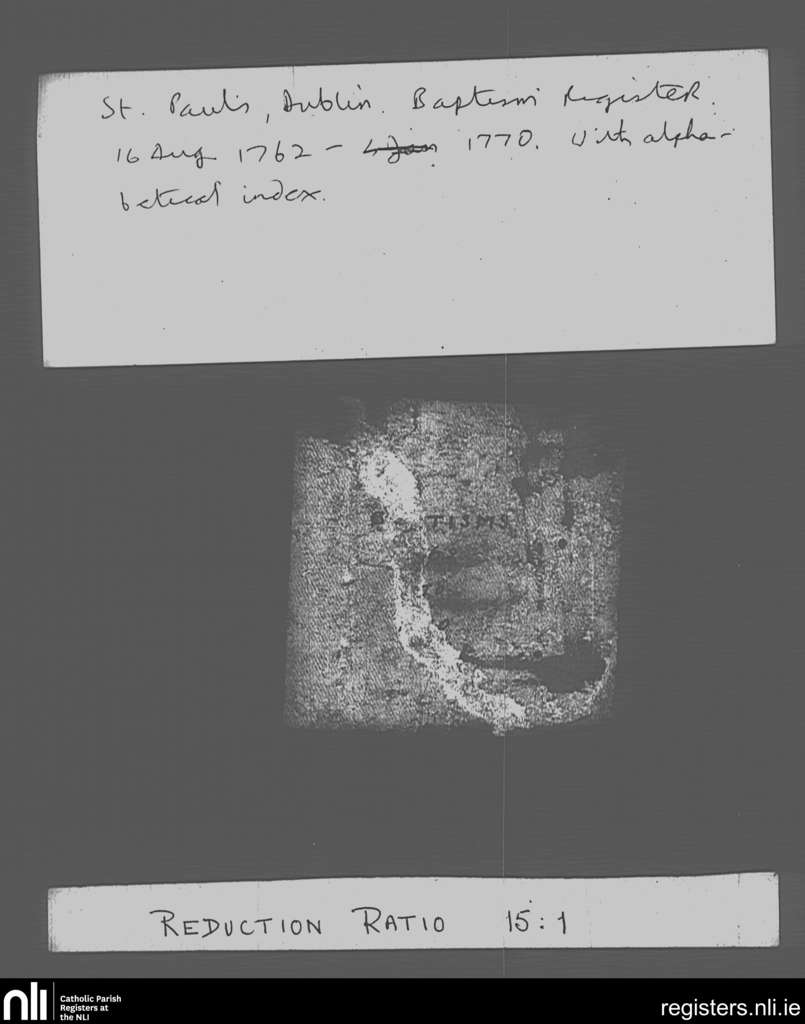 St. Paul's, Dublin. Baptism Register.
16 Aug 1762 – 1770. With alpha-
betical index.
TISMS
REDUCTION RATIO 15:1
nli
Catholic Parish
Registers at
the NLI
registers.nli.ie